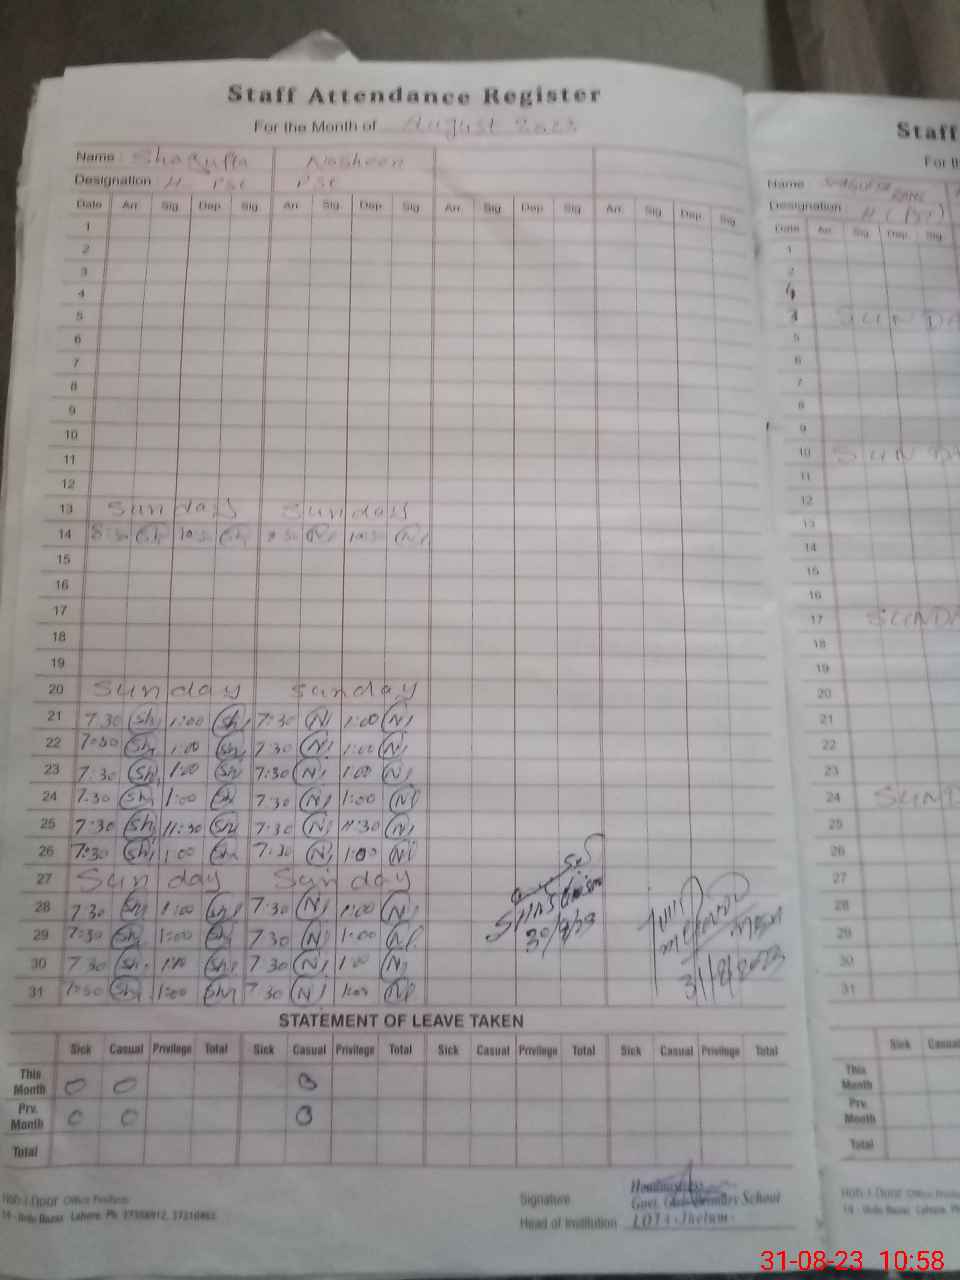 Staff Attendance Register
For the Month of August 2023
Name Shagufta Nosheen
Designation H. PST PST
Date Arr. Sig. Dep. Sig. Arr. Sig. Dep. Sig. Arr. Sig. Dep. Sig. Arr. Sig. Dep. Sig.
1
2
3
4
5
6
7
8
9
10
11
12
13 Sunday Sunday
14 8:30 Sh 10:30 Sh 8:30 N 10:30 N
15
16
17
18
19
20 Sunday Sunday
21 7:30 Sh 1:00 Sh 7:30 N 1:00 N
22 7:30 Sh 1:00 Sh 7:30 N 1:00 N
23 7:30 Sh 1:00 Sh 7:30 N 1:00 N
24 7:30 Sh 1:00 Sh 7:30 N 1:00 N
25 7:30 Sh 11:30 Sh 7:30 N 11:30 N
26 7:30 Sh 1:00 Sh 7:30 N 1:00 N
27 Sunday Sunday
28 7:30 Sh 1:00 Sh 7:30 N 1:00 N
29 7:30 Sh 1:00 Sh 7:30 N 1:00 N
30 7:30 Sh 1:00 Sh 7:30 N 1:00 N
31 7:30 Sh 1:00 Sh 7:30 N 1:00 N
30/8/23
31/8/2023
STATEMENT OF LEAVE TAKEN
Sick Casual Privilege Total Sick Casual Privilege Total Sick Casual Privilege Total Sick Casual Privilege Total
This Month 0 0
Prv. Month 0 0
Total
Office Products
14 - Urdu Bazar Lahore. Ph:
Signature
Head of Institution
Govt. School
Jhelum
Staff
For th
Name
Designation
Date Arr. Sig. Dep. Sig.
1
2
4 SUNDA
5
6
7
8
9
10 SUNDA
11
12
13
14
15
16
17 SUNDA
18
19
20
21
22
23
24 SUND
25
26
27
28
29
30
31
Sick Casual
This Month
Prv. Month
Total
31-08-23 10:58